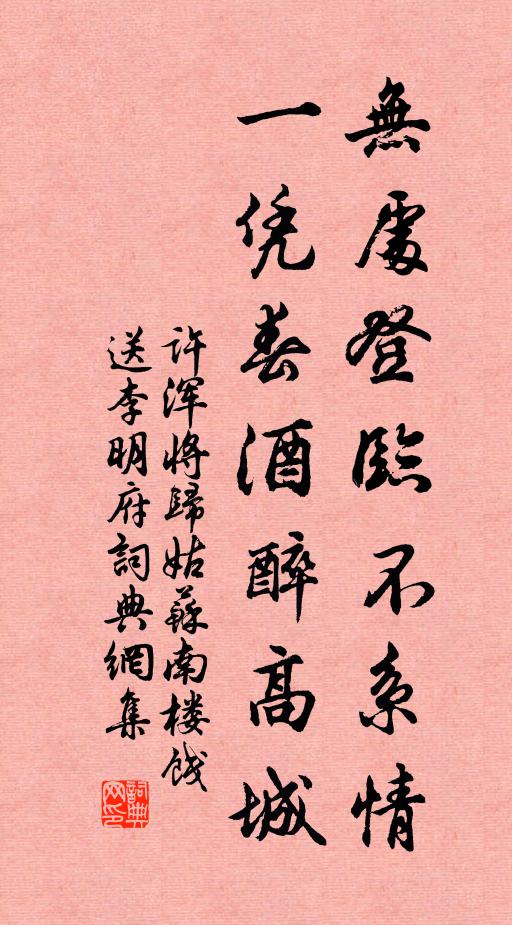 無處登臨不系情
一凭春酒醉高城
许浑將歸姑蘇南楼饯
送李明府詞典網集
詞典
网印